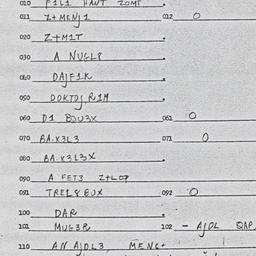 010 FILI HANT ZOMT
011 Z+MENJ1 012 O
020 Z+M1T
030 A NUGL8
040 DAJF1K
050 DOKTOJ R1M
060 D1 BJU3X 061 O
070 BA.X3L3 071 O
080 BA.X3L3X
090 A FET3
091 TREL8 8UX 092 O
100 DAR
101 MUG3R 102 - AJDL QAP
110 AN AJDL3, MENG+